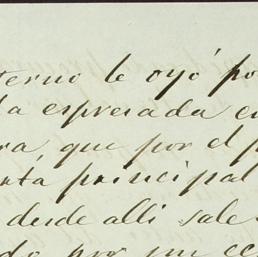 terno le oyó po
la espresada en
ra que por el p
rtá principal
desde alli sale
do por un ce